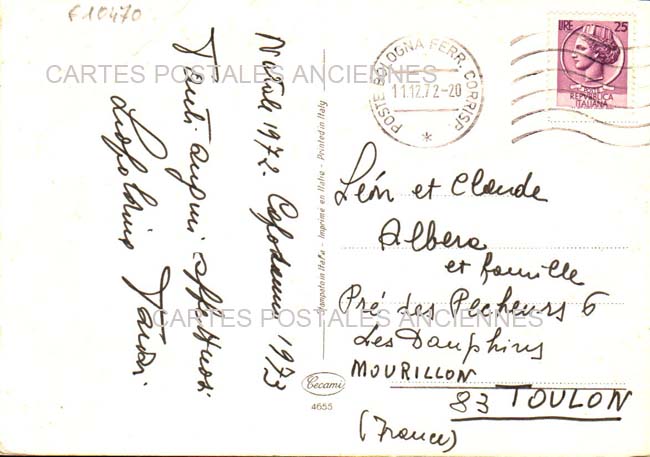 £10470
CARTES POSTALES ANCIENNES
Natale 1972. Capodanno 1973
Tanti auguri affettuosi
Leopoldina
Stampato in Italia - Imprimé en Italie - Printed in Italy
Cecami
4655
POSTE BOLOGNA FERR. CORRISP.
11.12.72-20
*
LIRE 25
POSTE
REPVBBLICA
ITALIANA
Léon et Claude
Albera
et famille
Pré des Pecheurs 6
Les Dauphins
MOURILLON
83 TOULON
(France)
CARTES POSTALES ANCIENNES